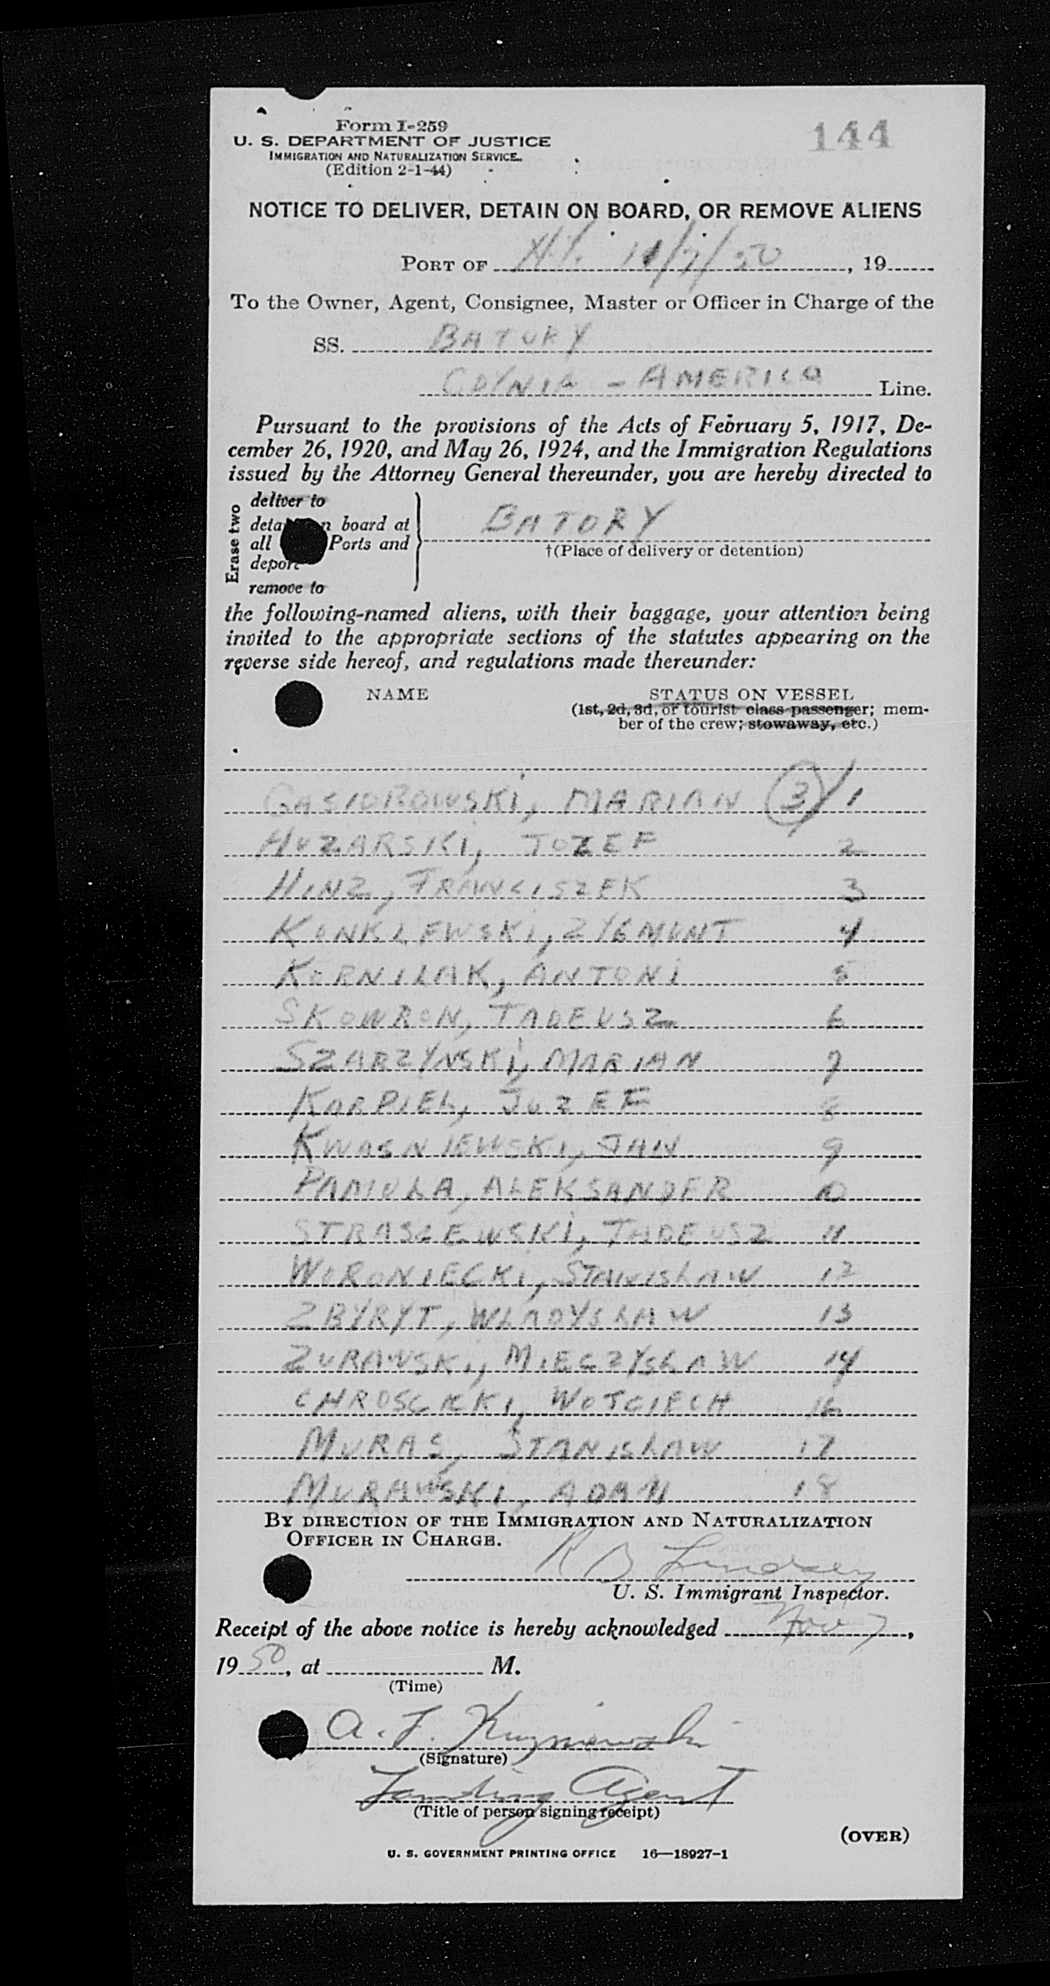 Form I-259
U. S. DEPARTMENT OF JUSTICE
IMMIGRATION AND NATURALIZATION SERVICE
(Edition 2-1-44)
144
NOTICE TO DELIVER, DETAIN ON BOARD, OR REMOVE ALIENS
PORT OF N.Y. 11/7/50, 19
To the Owner, Agent, Consignee, Master or Officer in Charge of the
SS. BATORY
GDYNIA - AMERICA Line.
Pursuant to the provisions of the Acts of February 5, 1917, De-
cember 26, 1920, and May 26, 1924, and the Immigration Regulations
issued by the Attorney General thereunder, you are hereby directed to
Erase two
deliver to
board at
all Ports and
remove to
BATORY
†(Place of delivery or detention)
the following-named aliens, with their baggage, your attention being
invited to the appropriate sections of the statutes appearing on the
reverse side hereof, and regulations made thereunder:
NAME STATUS ON VESSEL
(1st, 2d, 3d, or tourist class passenger; mem-
ber of the crew; stowaway, etc.)
GASIOROWSKI, MARIAN 3 1
HUZARSKI, JOZEF 2
HINZ, FRANCISZEK 3
KONKLEWSKI, ZYGMUNT 4
KORNILAK, ANTONI 5
SKOWRON, TADEUSZ 6
SZARZYNSKI, MARIAN 7
KARPIEL, JOZEF 8
KWASNIEWSKI, JAN 9
PAMULA, ALEKSANDER 10
STRASZEWSKI, TADEUSZ 11
WORONIECKI, STANISLAW 12
ZBYRYT, WLADYSLAW 13
ZURAWSKI, MIECZYSLAW 14
CHROSCICKI, WOJCIECH 16
MURAS, STANISLAW 17
MURAWSKI, ADAM 18
BY DIRECTION OF THE IMMIGRATION AND NATURALIZATION
OFFICER IN CHARGE.
R B Lindsey
U. S. Immigrant Inspector.
Receipt of the above notice is hereby acknowledged Nov 7,
19 50, at M.
(Time)
A. F.
(Signature)
Landing Agent
(Title of person signing receipt)
(OVER)
U. S. GOVERNMENT PRINTING OFFICE 16—18927-1